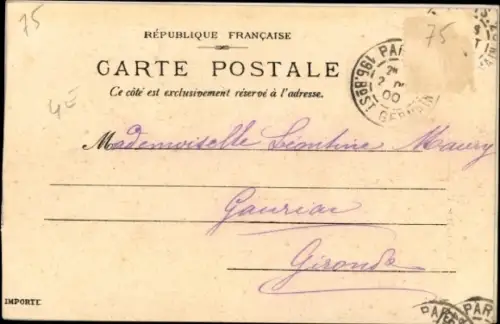 75
75
RÉPUBLIQUE FRANÇAISE
CARTE POSTALE
Ce côté est exclusivement réservé à l'adresse.
PAR
00
ST GERMAIN
4E
Mademoiselle Léontine Maury
Gauriac
Gironde
IMPORTÉ
PAR
PAR